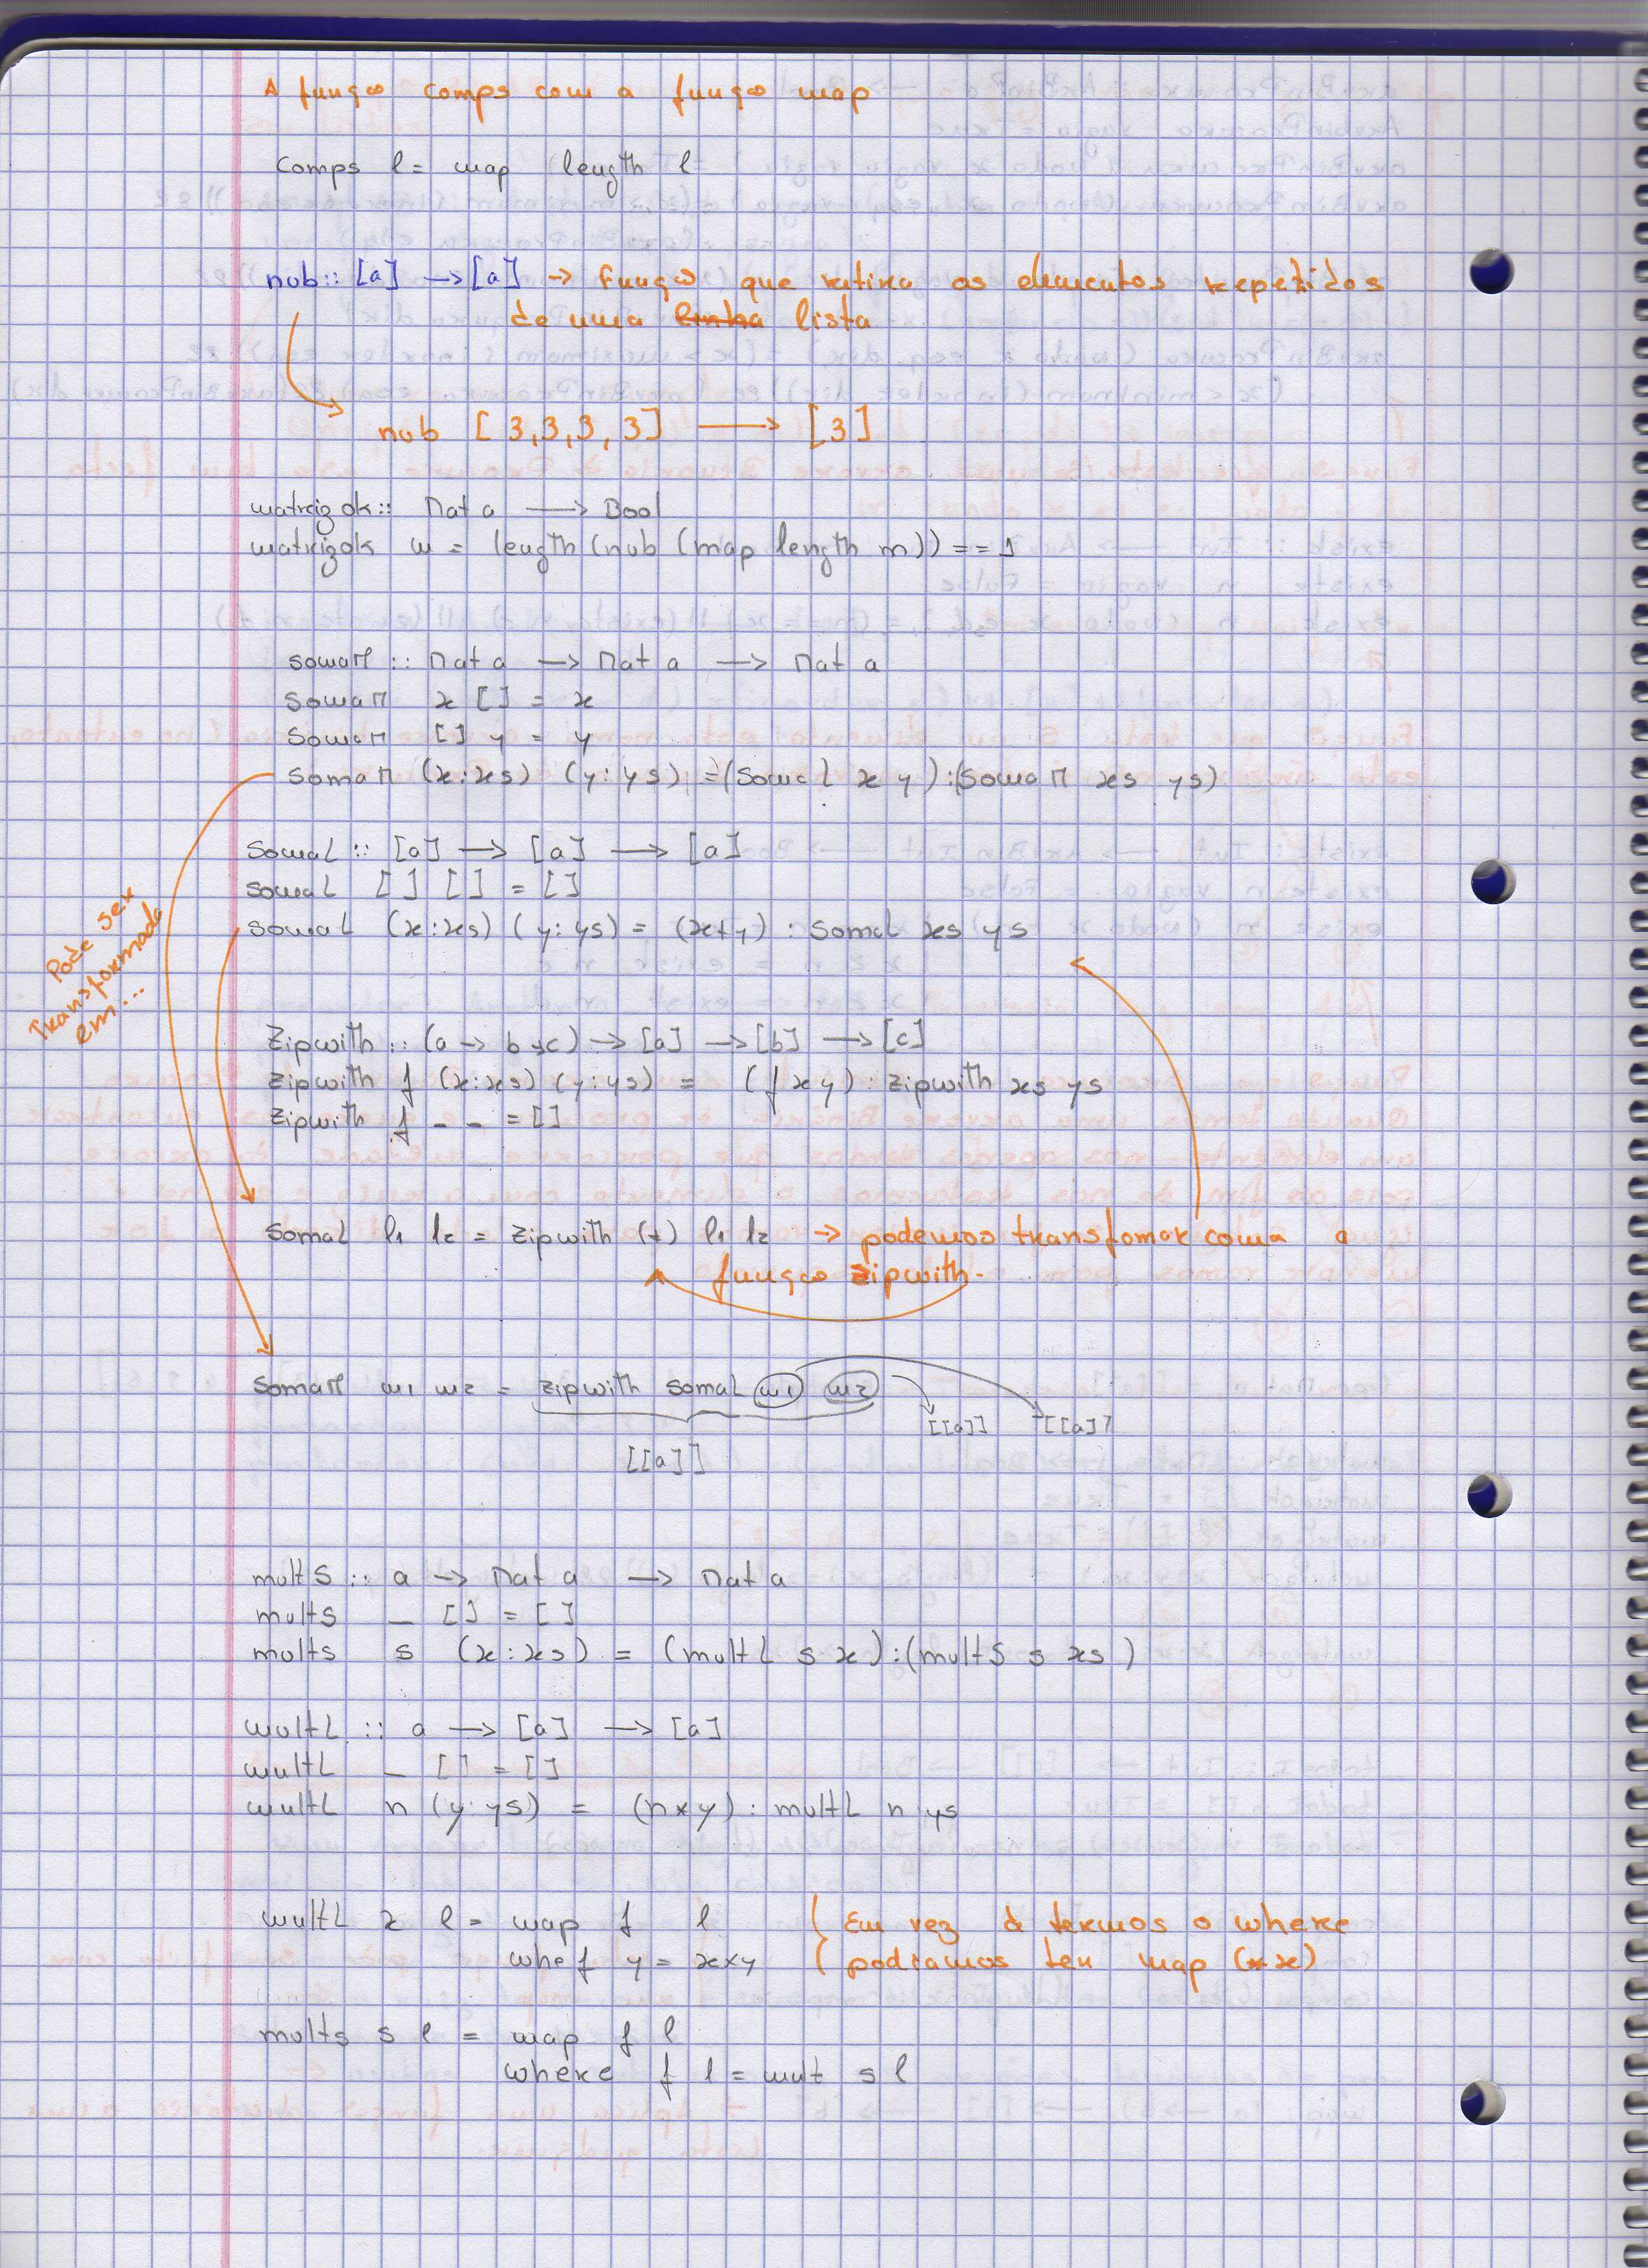 A função comps com a função map
Comps l = map length l
nub :: [a] → [a] → função que retira os elementos repetidos
de uma linha lista
nub [3,3,3,3] → [3]
matrizok :: Mat a → Bool
matrizok m = length (nub (map length m)) == 1
somaM :: Mat a → Mat a → Mat a
somaM x [] = x
somaM [] y = y
somaM (x:xs) (y:ys) = (somaL x y) : (somaM xs ys)
somaL :: [a] → [a] → [a]
somaL [] [] = []
somaL (x:xs) (y:ys) = (x+y) : somaL xs ys
Pode ser
transformada
em...
Zipwith :: (a → b → c) → [a] → [b] → [c]
Zipwith f (x:xs) (y:ys) = (f x y) : zipwith xs ys
Zipwith f _ _ = []
somaL l1 l2 = zipwith (+) l1 l2 → podemos transfomar coma a
função zipwith.
somaM m1 m2 = zipwith somaL m1 m2
[[a]] [[a]]
[[a]]
multS :: a → Mat a → Mat a
multS _ [] = []
multS s (x:xs) = (multL s x) : (multS s xs)
multL :: a → [a] → [a]
multL _ [] = []
multL n (y:ys) = (n*y) : multL n ys
multL x l = map f l ( Em vez d termos o where
whe f y = x*y ( podiamos ter map (*x)
multS s l = map f l
where f l = mult s l